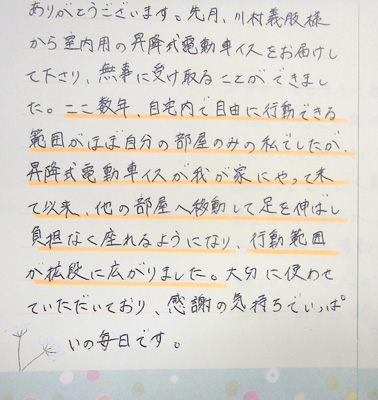 ありがとうございます。先月、川村義肢様
から室内用の昇降式電動車イスをお届けし
て下さり、無事に受け取ることができまし
た。ここ数年、自宅内で自由に行動できる
範囲がほぼ自分の部屋のみの私でしたが、
昇降式電動車イスが我が家にやって来
て以来、他の部屋へ移動して足を伸ばし
負担なく座れるようになり、行動範囲
が拡段に広がりました。大切に使わせ
ていただいており、感謝の気持ちでいっぱ
いの毎日です。